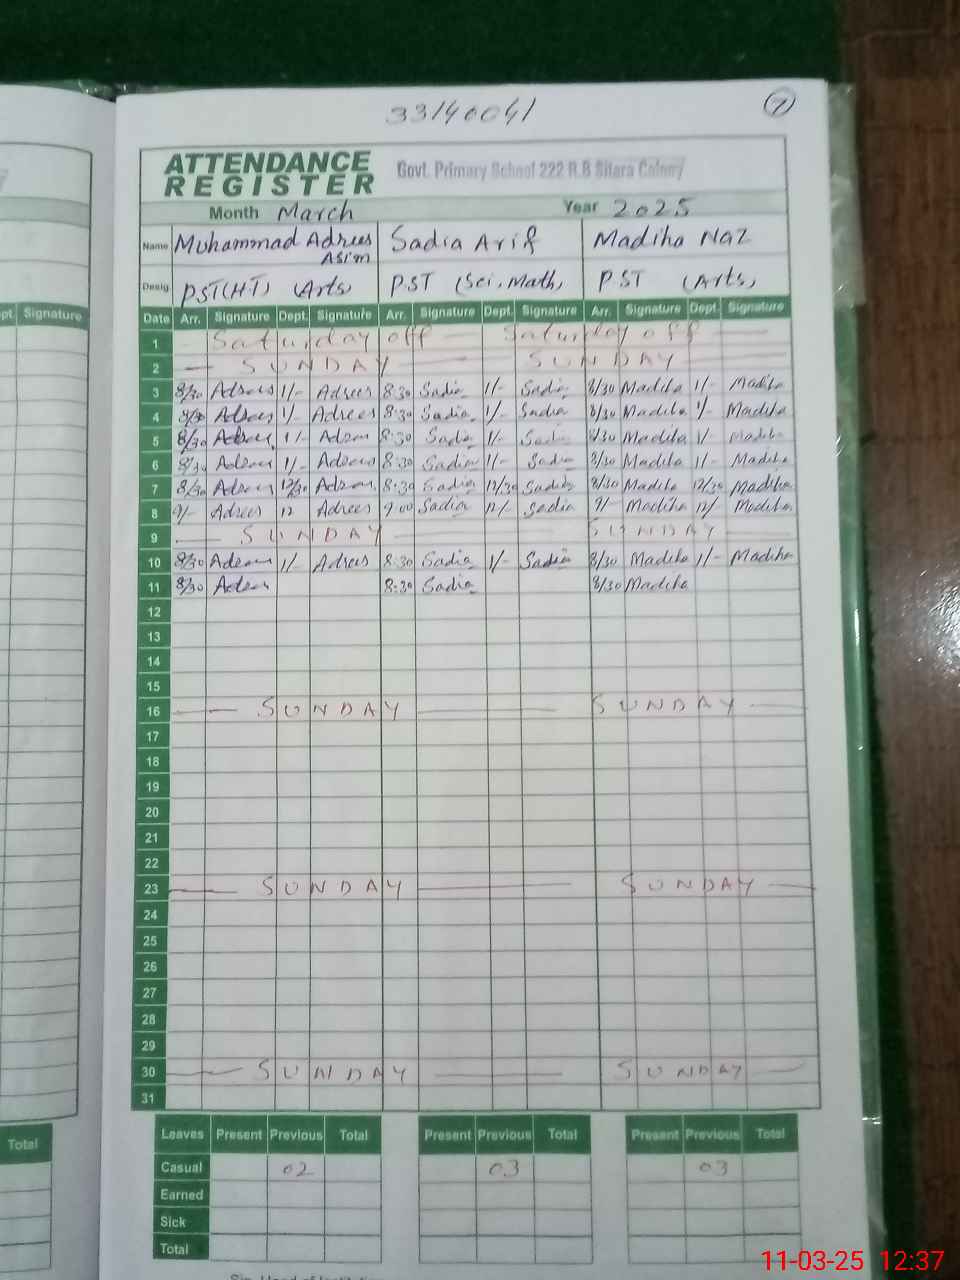 33140041
7
ATTENDANCE
REGISTER
Govt. Primary School 222 R.B Sitara Colony
Month March Year 2025
Name Muhammad Adrees Asim Sadia Arif Madiha Naz
Desig. PST(HT) (Arts) PST (Sci, Math) PST (Arts)
ept. Signature
Date Arr. Signature Dept. Signature Arr. Signature Dept. Signature Arr. Signature Dept. Signature
1 Saturday off Saturday off
2 SUNDAY SUNDAY
3 8/30 Adrees 1/- Adrees 8:30 Sadia 1/- Sadia 8/30 Madiha 1/- Madiha
4 8/30 Adrees 1/- Adrees 8:30 Sadia 1/- Sadia 8/30 Madiha 1/- Madiha
5 8/30 Adrees 1/- Adrees 8:30 Sadia 1/- Sadia 8/30 Madiha 1/- Madiha
6 8/30 Adrees 1/- Adrees 8:30 Sadia 1/- Sadia 8/30 Madiha 1/- Madiha
7 8/30 Adrees 12/30 Adrees 8:30 Sadia 12/30 Sadia 8/30 Madiha 12/30 Madiha
8 9/- Adrees 12 Adrees 9:00 Sadia 12/ Sadia 9/- Madiha 12/ Madiha
9 SUNDAY SUNDAY
10 8/30 Adrees 1/- Adrees 8:30 Sadia 1/- Sadia 8/30 Madiha 1/- Madiha
11 8/30 Adrees 8:30 Sadia 8/30 Madiha
12
13
14
15
16 SUNDAY SUNDAY
17
18
19
20
21
22
23 SUNDAY SUNDAY
24
25
26
27
28
29
30 SUNDAY SUNDAY
31
Total
Leaves Present Previous Total Present Previous Total Present Previous Total
Casual 02 03 03
Earned
Sick
Total
11-03-25 12:37